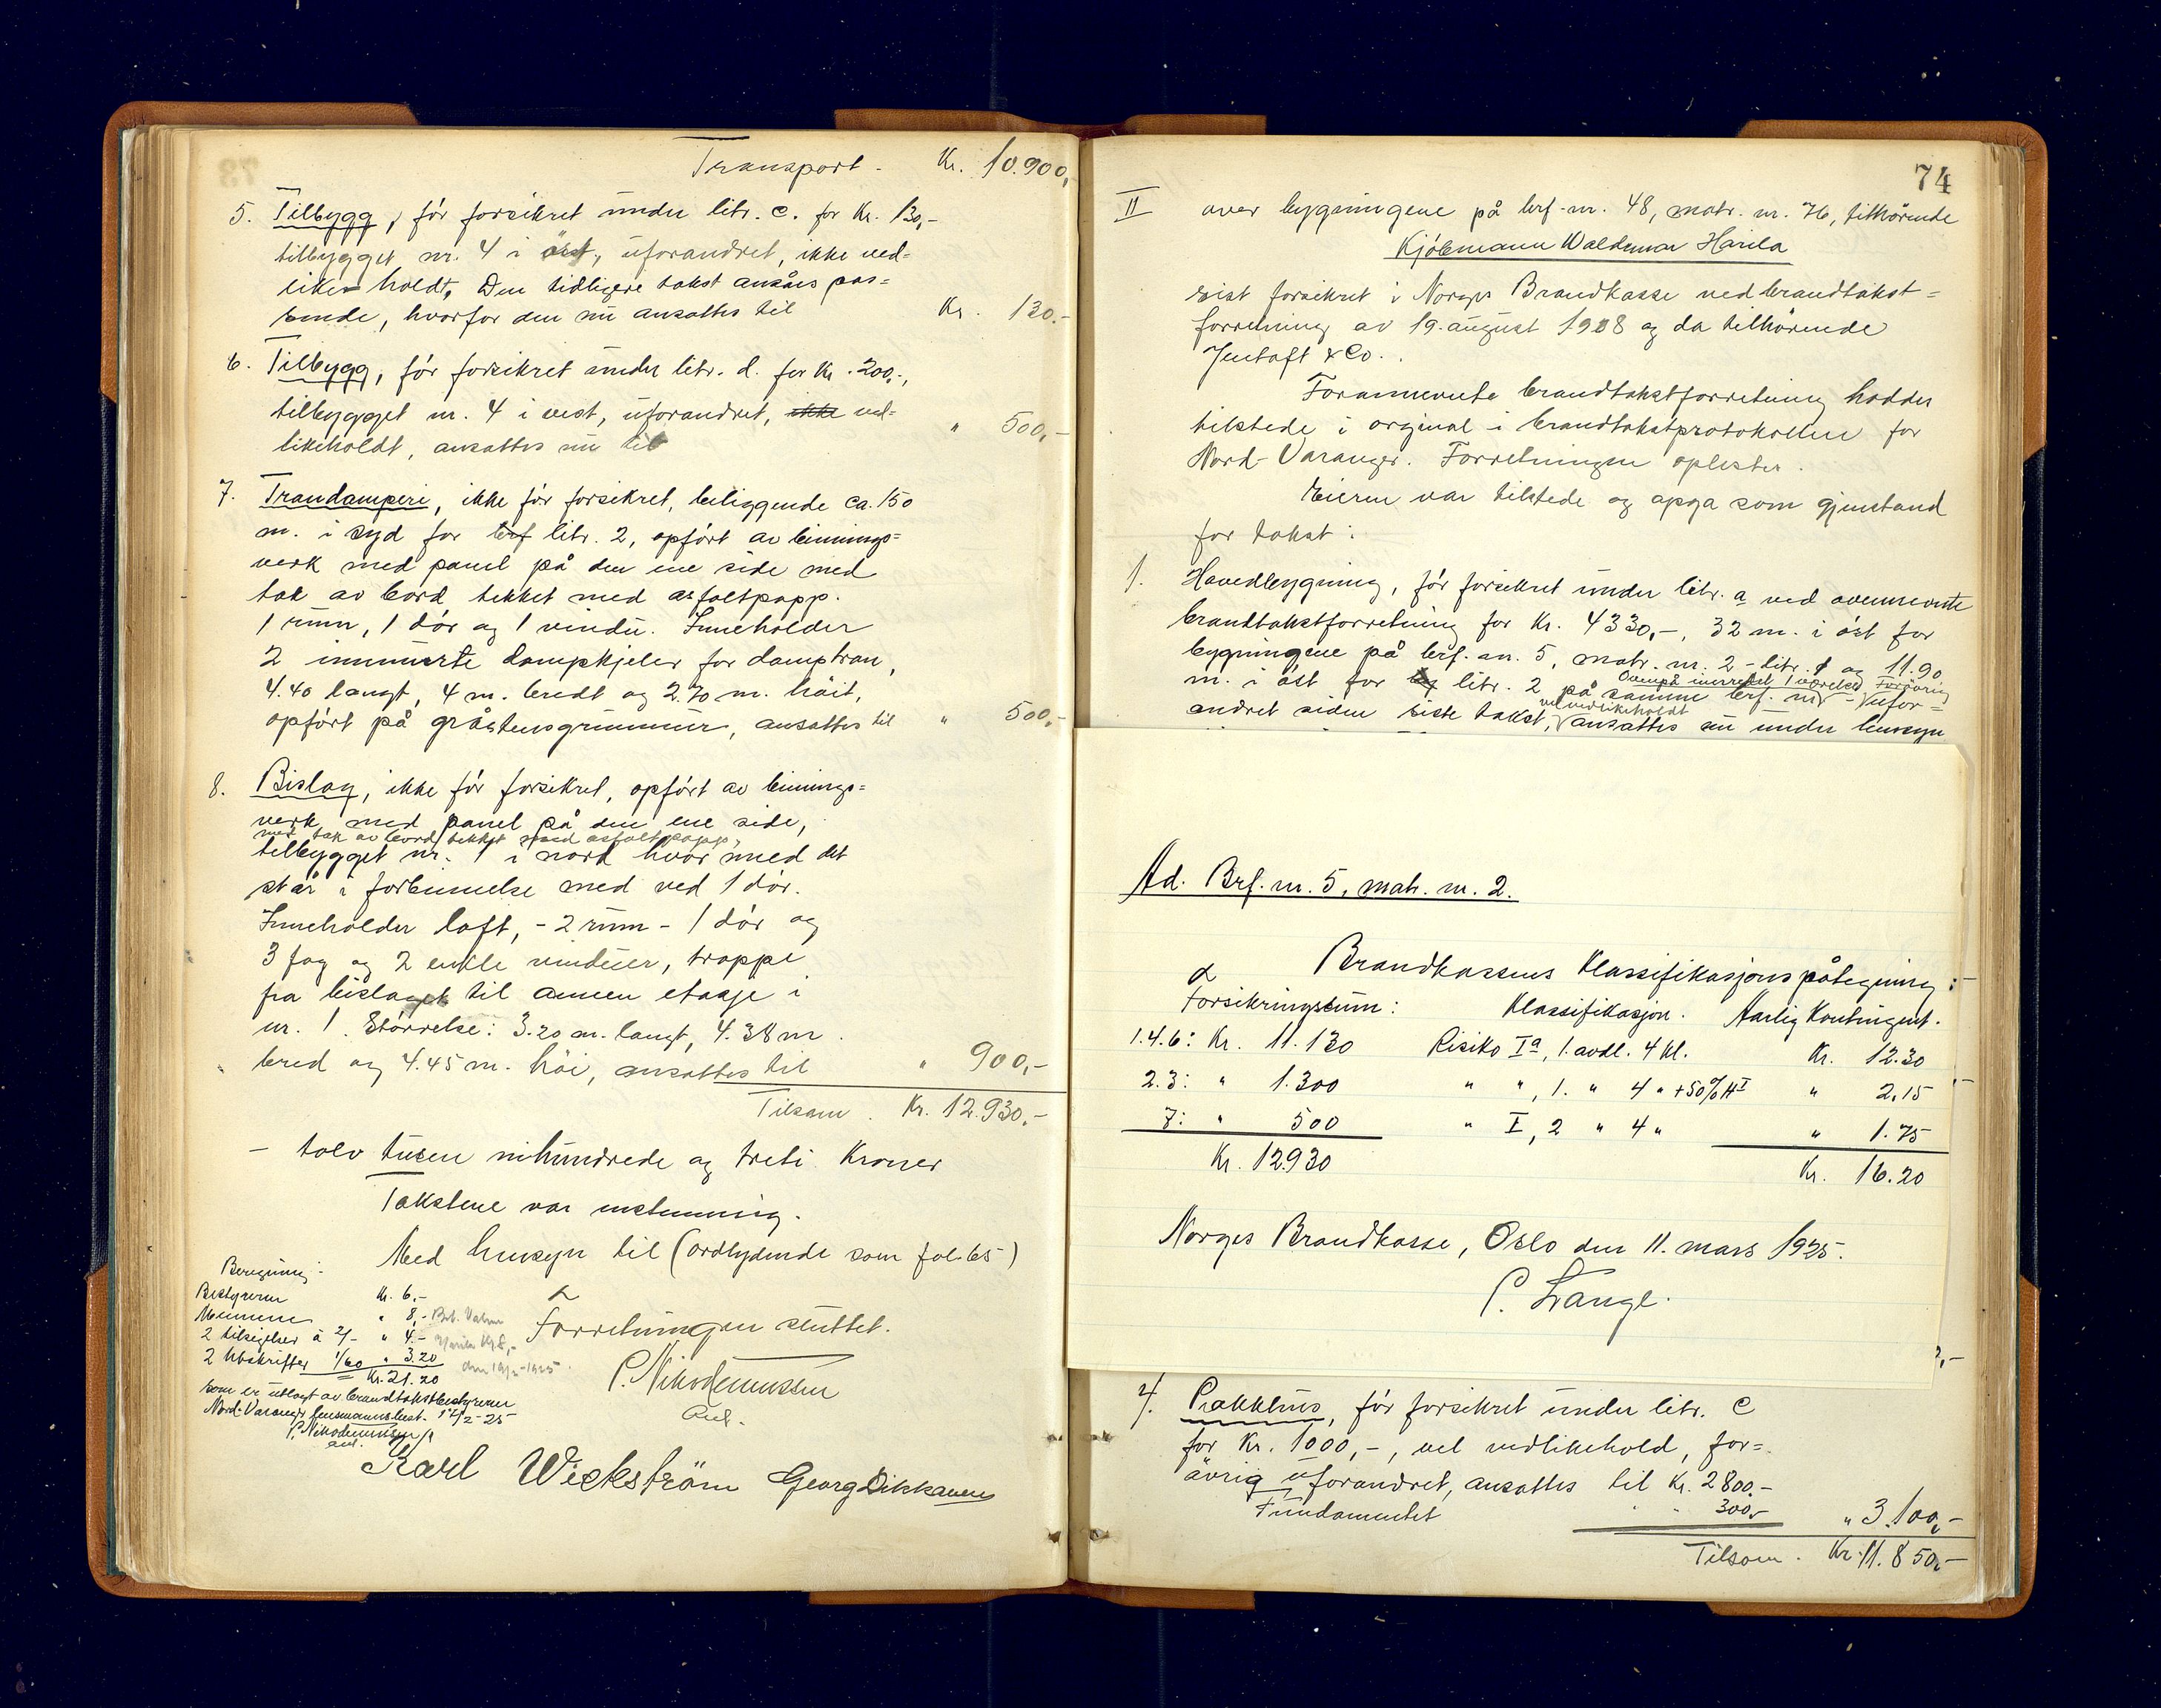 Transport - Kr. 10.900,
5. Tilbygg, før forsikret under litr. c. for Kr. 130,-
tilbygget nr. 4 i øst, uforandret, ikke ved=
like holdt. Den tidligere takst ansåes pas=
sende, hvorfor den nu ansattes til Kr. 130.-
6. Tilbygg, før forsikret under litr. d. for Kr. 200,-,
tilbygget nr. 4 i vest, uforandret, ikke ved=
likeholdt, ansattes nu til " 500,-
7. Trandamperi, ikke før forsikret, beliggende ca. 150
m. i syd for brf litr. 2, opført av binnings=
verk med panel på den ene side med
tak av bord tekket med asfaltpapp.
1 rum, 1 dør og 1 vindu. Inneholder
2 innmurte dampkjeler for damptran,
4.40 langt, 4 m. bredt og 2.70 m. høit,
opført på gråstensgrunnmur, ansattes til " 500,-
8. Bislag, ikke før forsikret, opført av binnings=
verk med panel på den ene side,
med tak av bord tekket med asfaltpapp,
tilbygget nr. 1 i nord hvor med det
står i forbinnelse med ved 1 dør.
Inneholder loft, - 2 rum - 1 dør og
3 fag og 2 enkle vinduer, trappe
fra bislaget til annen etasje i
nr. 1. Størrelse: 3.20 m. langt, 4.38 m
bred og 4.45 m. høi, ansattes til " 900,-
Tilsam. Kr. 12.930.-
- tolv tusen nihundrede og treti Kroner
Takstene var enstemmig.
Med hensyn til (ordlydende som fol. 65)
Beregning:
Bestyreren Kr. 6.-
Mennene " 8,-
2 tilsigelser à 2/- " 4.-
2 Avskrifter 1/60 " 3.20
Kr. 21.20
som er utlagt av brandtakstbestyreren
Nord-Varanger lensmannsbest. 14/2-25
P. Nikodemussen
aut.
Forretningen sluttet.
P. Nikodemussen
Aut.
Karl Wickström Georg Dikkanen
74
II over bygningene på brf-nr. 48, matr. nr. 76, tilhørende
Kjøbmann Waldemar Harila
sist forsikret i Norges Brandkasse ved brandtakst=
forretning av 19. august 1908 og da tilhørende
Jentoft & Co.
Forannevnte brandtakstforretning haddes
tilstede i orginal i brandtakstprotokollen for
Nord-Varanger. Forretningen oplestes.
Eieren var tilstede og opga som gjenstand
for takst:
1. Hovedbygning, før forsikret under litr. a ved ovennevnte
brandtakstforretning for Kr. 4330,-, 32 m. i øst for
bygningene på brf. nr. 5, matr. nr. 2 - litr. 1 og 11.90
Ovenpå innredet 1 værelse. Forøvrig
m. i øst for litr. 2 på samme brf. nr - ufor=
vel vedlikeholdt
andret siden siste takst, ansattes nu under hensyn
Ad. Brf. nr. 5, matr. nr. 2.
Brandkassens Klassifikasjonspåtegning:
Forsikringssum: Klassifikasjon. Aarlig Kontingent.
1.4.6: Kr. 11.130 Risiko Ia, 1. avdl. 4 Kl. Kr. 12.30
2.3: " 1.300 " ", 1. " 4 " + 50% HI " 2.15
7: " 500 " I, 2 " 4 " " 1.75
Kr. 12930 Kr. 16.20
Norges Brandkasse, Oslo den 11. mars 1925.
P. Lange.
4. Pakkhus, før forsikret under litr. c
for Kr. 1000,-, vel vedlikehold, for=
øvrig uforandret, ansattes til Kr. 2800.-
Fundamentet " " 300,- " 3.100,-
Tilsam. Kr. 11.850,-